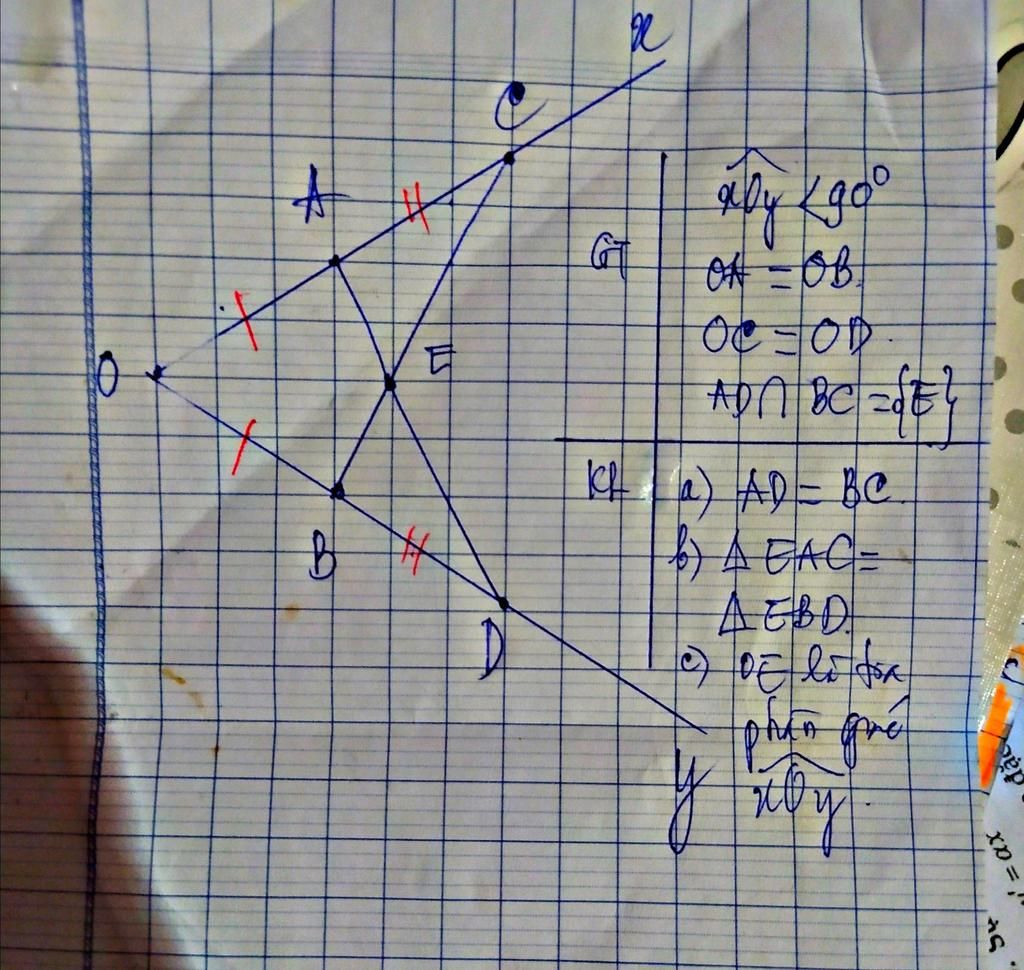 x
C
A
O
E
B
D
y
GT
xOy < 90°
OA = OB.
OC = OD.
AD ∩ BC = {E}
KL
a) AD = BC.
b) Δ EAC =
Δ EBD.
c) OE là
phân giác
xOy.
= ax